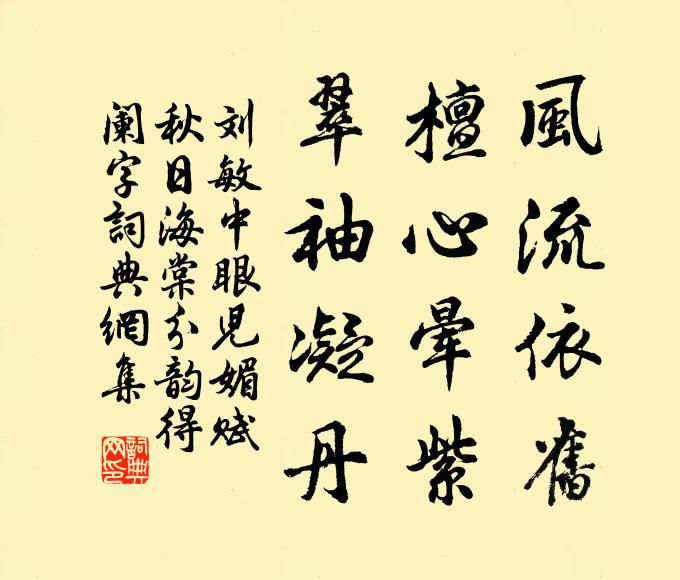 風流依舊
檀心暈紫
翠袖凝丹
刘敏中眼児媚賦
秋日海棠分韵得
阑字詞典網集
詞典网印